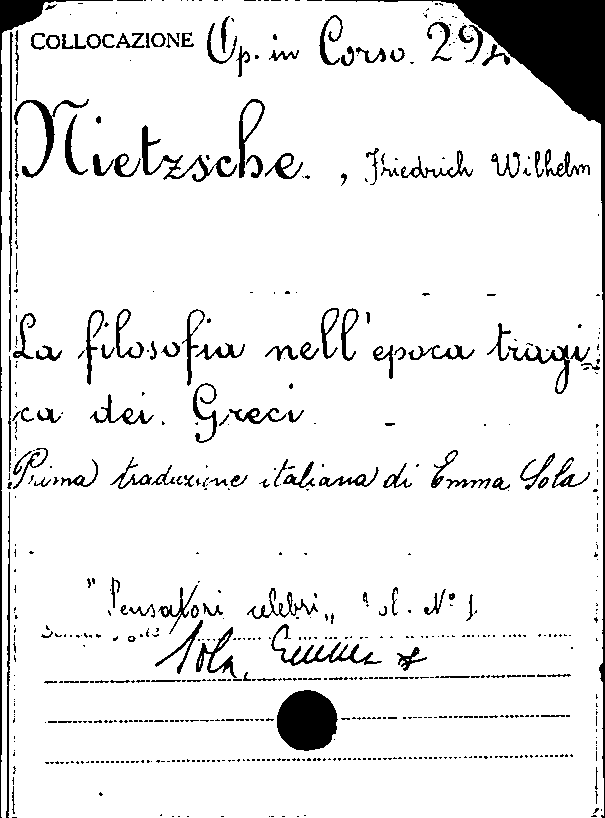 COLLOCAZIONE Op. in Corso. 29
Nietzsche. , Friedrich Wilhelm
La filosofia nell'epoca tragi-
ca dei Greci
Prima traduzione italiana di Emma Sola
"Pensatori celebri„ Vol. N° 1
Sola, Emma